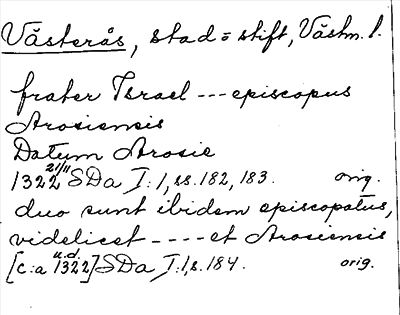 Västerås, stad = stift, Västm. l.
frater Israel --- episcopus
Arosiensis
Datum Arosie
1322 21/11 SDa I:1, ss. 182, 183. orig.
duo sunt ibidem episcopatus,
videlicet ---- et Arosiensis
[c:a 1322] u.d. SDa I:1, s. 184. orig.